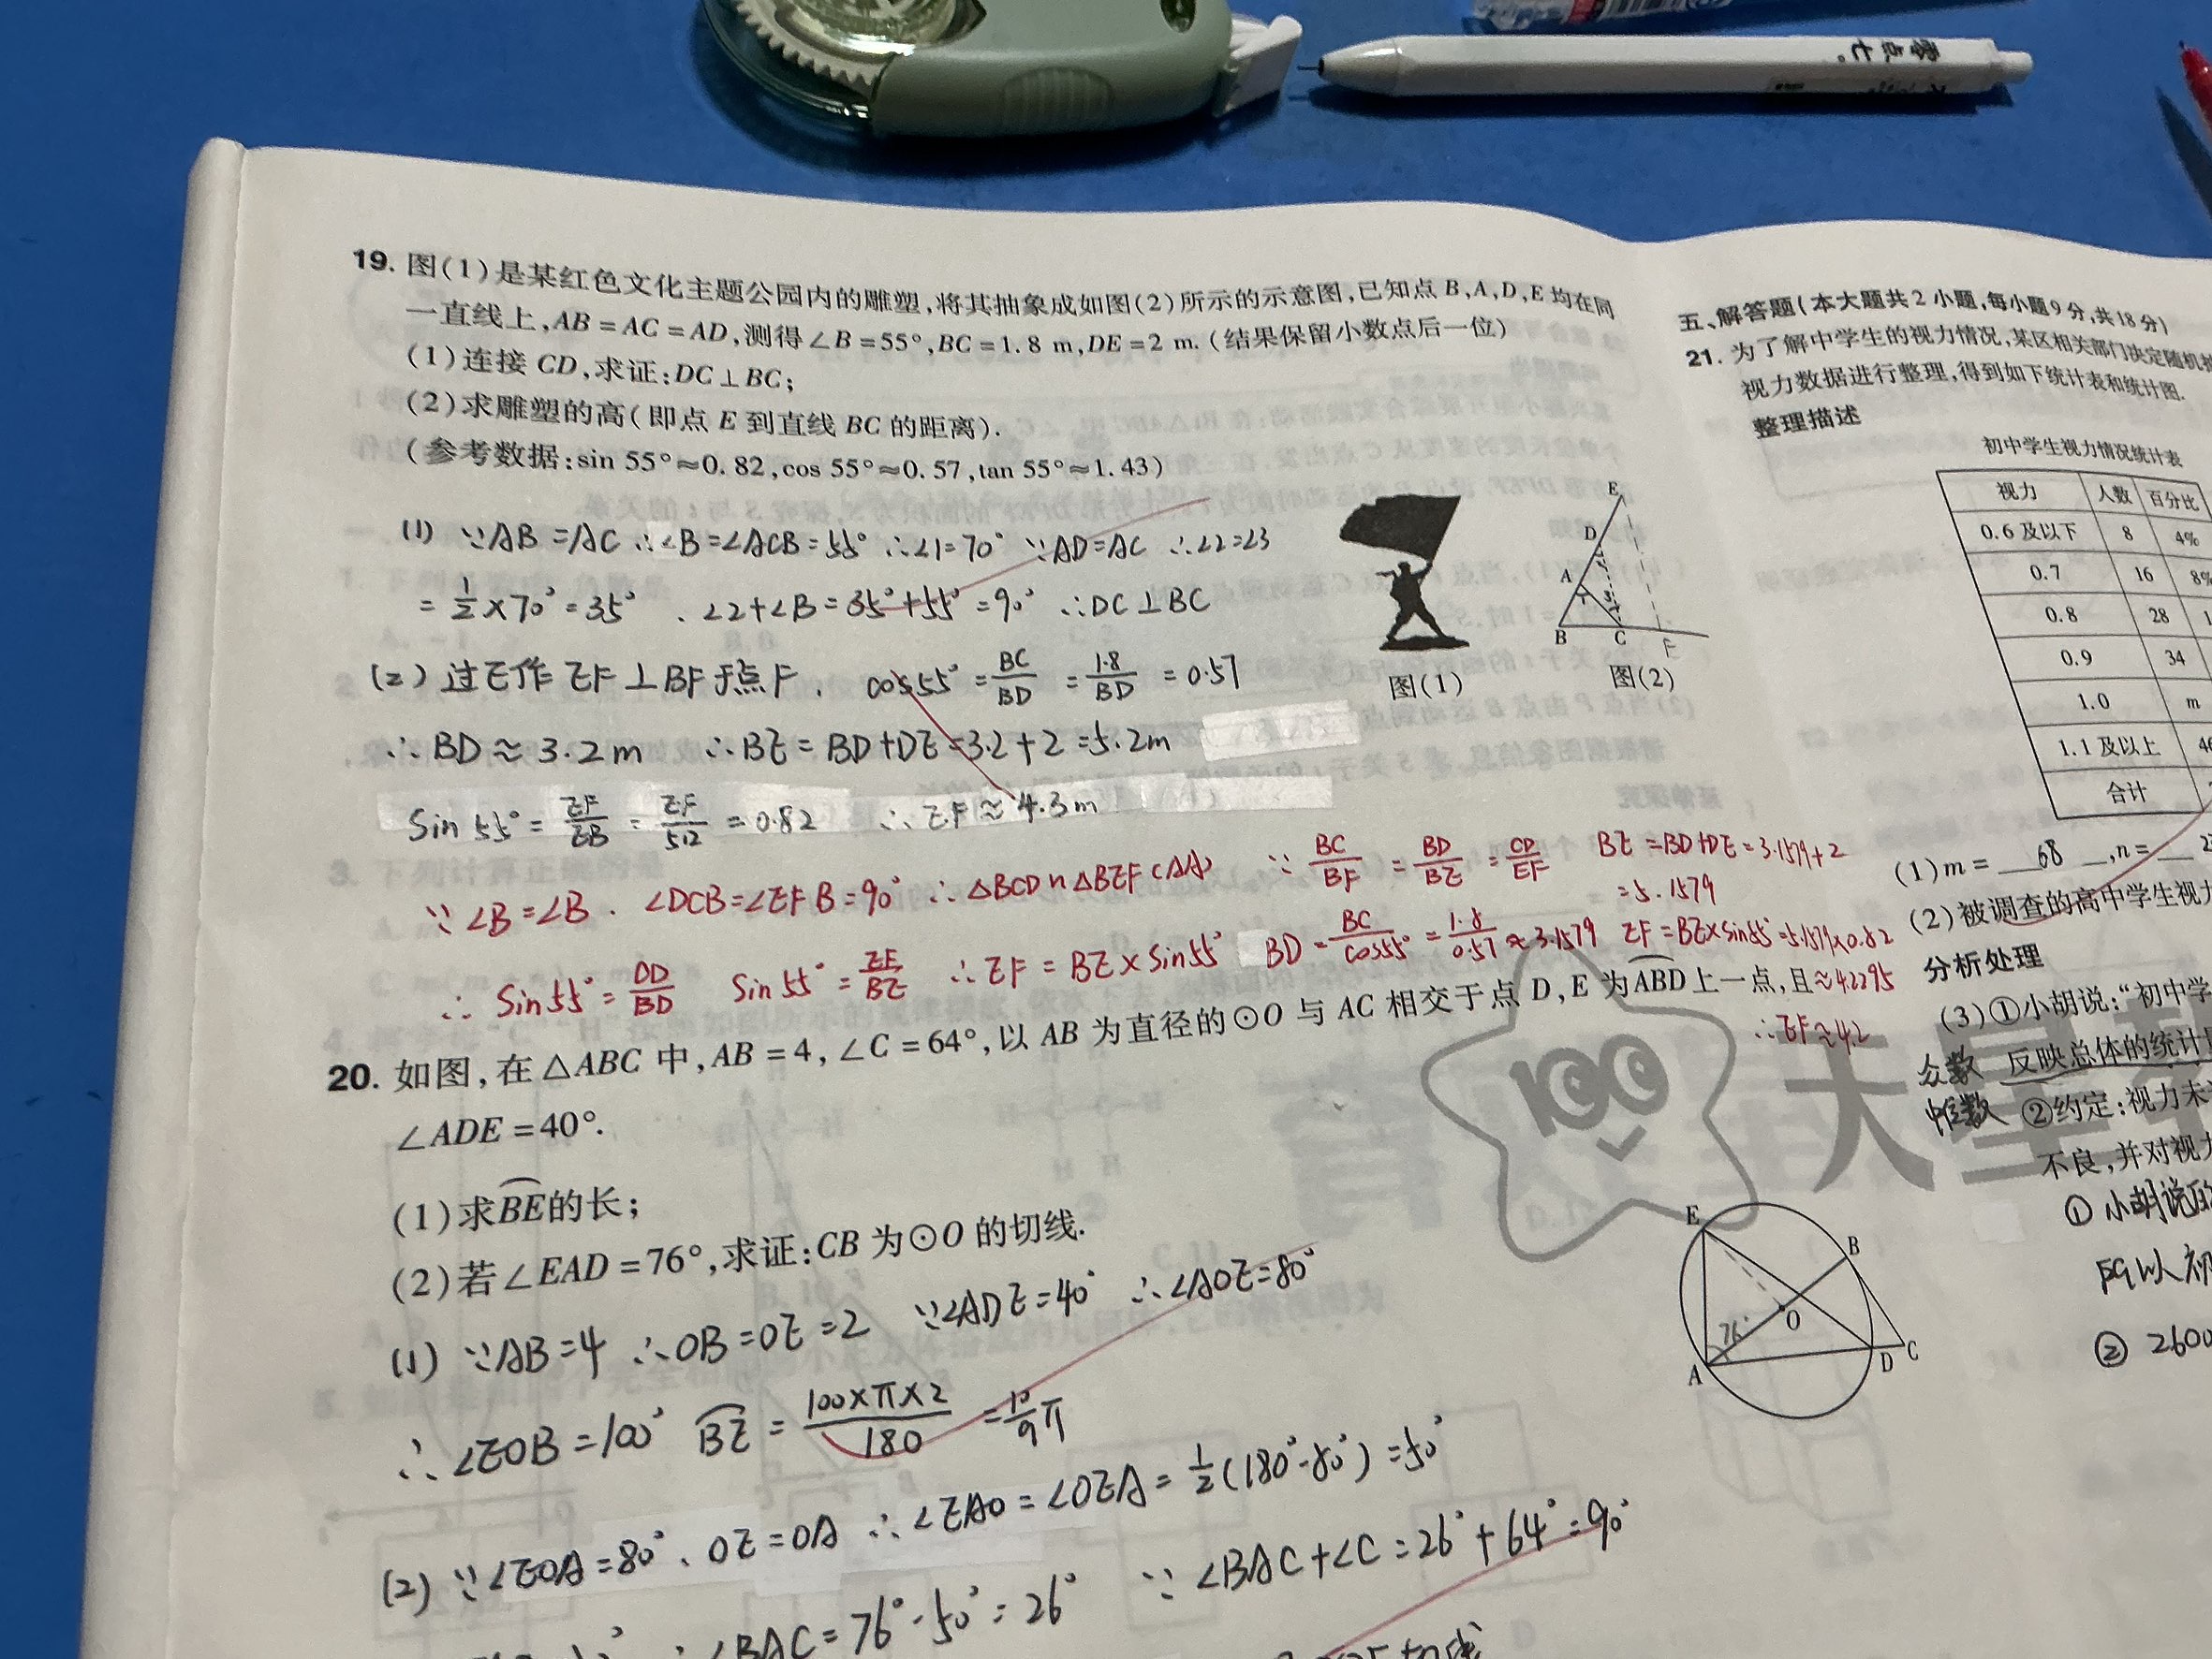 零点七。
19. 图(1)是某红色文化主题公园内的雕塑,将其抽象成如图(2)所示的示意图,已知点B,A,D,E均在同
一直线上,AB=AC=AD,测得∠B=55°,BC=1.8 m,DE=2 m.(结果保留小数点后一位)
(1)连接CD,求证:DC⊥BC;
(2)求雕塑的高(即点E到直线BC的距离).
(参考数据:sin 55°≈0.82,cos 55°≈0.57,tan 55°≈1.43)
(1) ∵AB=AC ∴∠B=∠ACB=55° ∴∠1=70° ∵AD=AC ∴∠2=∠3
=1/2×70°=35° 、∠2+∠B=35°+55°=90° ∴DC⊥BC
(2) 过E作EF⊥BF于点F、 cos55°=BC/BD=1.8/BD=0.57
∴BD≈3.2m ∴BE=BD+DE=3.2+2=5.2m
Sin55°=EF/EB=EF/5.2=0.82 ∴EF≈4.3m
E
D
A
2
3
1
B C F
图(1)
图(2)
∵∠B=∠B、∠DCB=∠EFB=90° ∴△BCD∽△BEF(AA) ∵BC/BF=BD/BE=CD/EF BE=BD+DE=3.1579+2
=5.1579
∴Sin55°=DD/BD Sin55°=EF/BE ∴EF=BE×Sin55° BD=BC/cos55°=1.8/0.57≈3.1579 EF=BE×sin55°=5.1579×0.82
≈4.2295
∴EF≈4.2
20. 如图,在△ABC中,AB=4,∠C=64°,以AB为直径的⊙O与AC相交于点D,E为ABD上一点,且
∠ADE=40°.
(1)求BE的长;
(2)若∠EAD=76°,求证:CB为⊙O的切线.
(1) ∵AB=4 ∴OB=OE=2 ∵∠ADE=40° ∴∠AOE=80°
∴∠EOB=100° BE=100×π×2/180=10/9π
(2) ∵∠EOA=80°、OE=OA ∴∠EAO=∠OEA=1/2(180°-80°)=50°
∠BAC=76°-50°=26° ∵∠BAC+∠C=26°+64°=90°
切线
E
B
O
76°
A
D C
100
天星教育
五、解答题(本大题共2小题,每小题9分,共18分)
21. 为了解中学生的视力情况,某区相关部门决定随机
视力数据进行整理,得到如下统计表和统计图.
整理描述
初中学生视力情况统计表
视力 人数 百分比
0.6及以下 8 4%
0.7 16 8%
0.8 28 1
0.9 34
1.0 m
1.1及以上 46
合计
(1)m=68,n=2
(2)被调查的高中学生视力
分析处理
(3)①小胡说:“初中学
众数 反映总体的统计
中位数 ②约定:视力未
不良,并对视力
① 小胡说的
所以初
② 2600